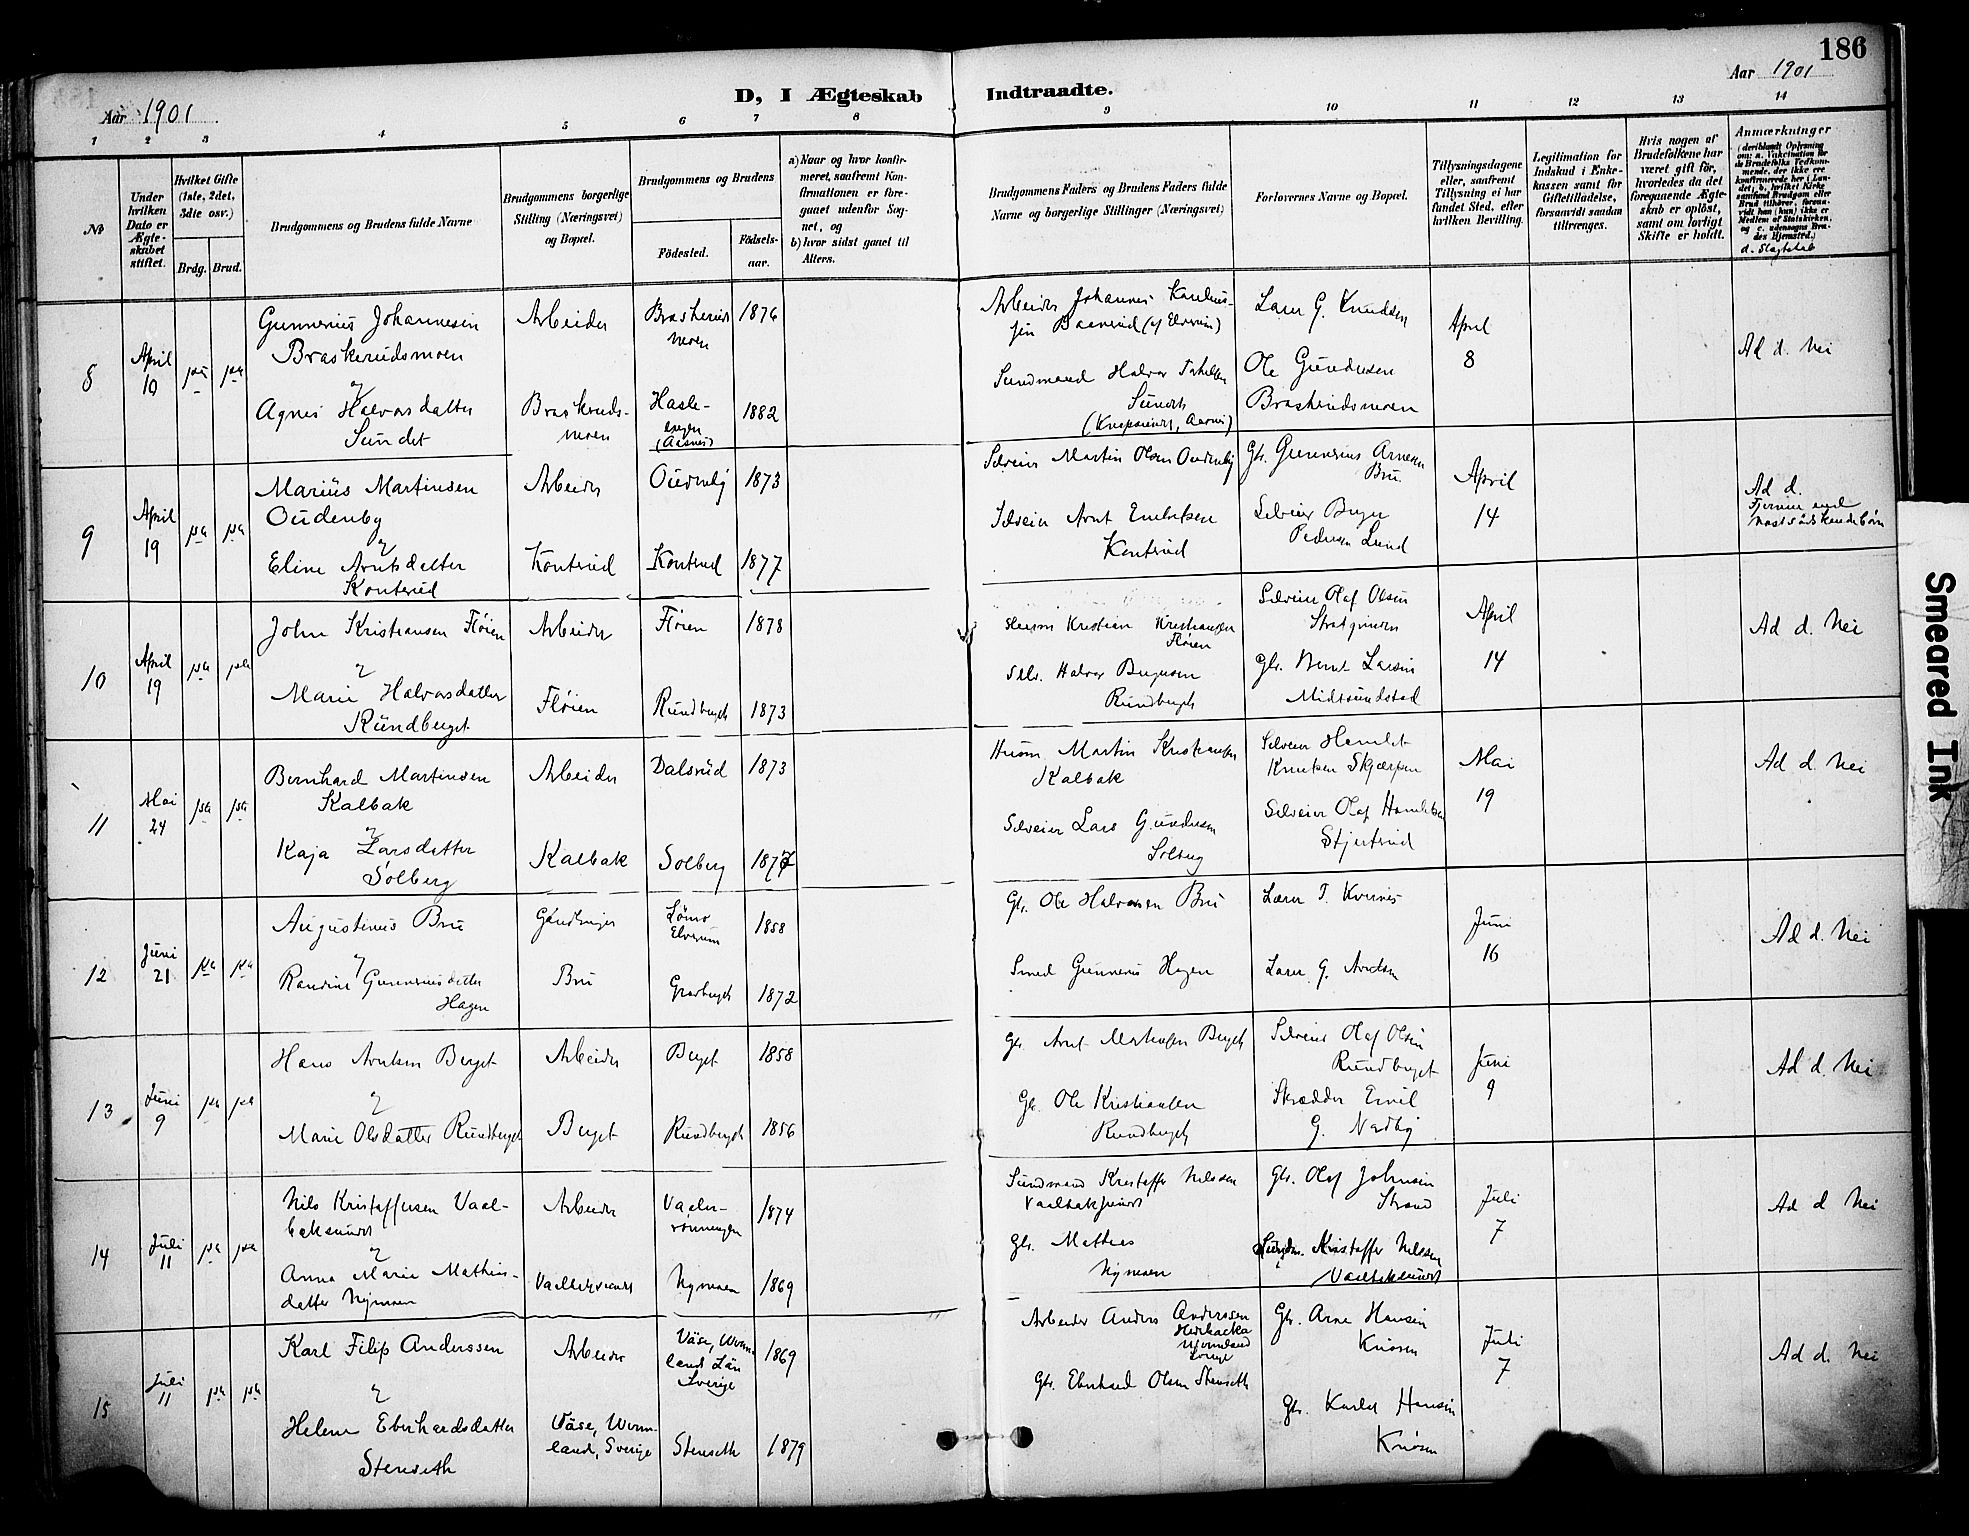 186
Aar 1901
Aar 1901
D, I Ægteskab Indtraadte.
1 2 3 4 5 6 7 8 9 10 11 12 13 14
No
Under hvilken Dato er Ægteskabet stiftet.
Hvilket Gifte (1ste, 2det, 3die osv.)
Brdg. Brud.
Brudgommens og Brudens fulde Navne
Brudgommens borgerlige Stilling (Næringsvei) og Bopæl.
Brudgommens og Brudens
Fødested.
Fødselsaar.
a) Naar og hvor konfirmeret, saafremt Konfirmationen er foregaaet udenfor Sognet, og
b) hvor sidst gaaet til Alters.
Brudgommens Faders og Brudens Faders fulde Navne og borgerlige Stillinger (Næringsvei)
Forlovernes Navne og Bopæl.
Tillysningsdagene eller, saafremt Tillysning ei har fundet Sted, efter hvilken Bevilling.
Legitimation for Indskud i Enkekassen samt for Giftetilladelse, forsaavidt saadan tiltrænges.
Hvis nogen af Brudefolkene har været gift før, hvorledes da det foregaaende Ægteskab er opløst, samt om lovligt Skifte er holdt.
Anmærkninger
d. Slægtskab
8
April 10
1ste 1ste
Gunnerius Johannesen
Braskerudsmoen
&
Agnes Halvorsdatter
Sundet
Arbeider
Braskerudsmoen
1876
Hasle-
1882
Arbeider Johannes
Sundmand Halvor
Sundet
Lars G. Knudsen
Ole Gundersen
Braskerudsmoen
April
8
Ad d. Nei
9
April 19
1ste 1ste
Marius Martinsen
Oudenby
&
Eline Arntsdatter
Konterud
Arbeider
Konterud
Oudenby
1873
Konterud
1877
Selveier Martin Olsen Oudenby
Selveier Arnt Embretsen
Konterud
Gbr. Gunnerius Arnesen
Bru
Selveier Birger
Pedersen Lund
April
14
Ad d.
Fjernere end
næstsødskendebørn
10
April 19
1ste 1ste
John Kristiansen Fløien
&
Marie Halvorsdatter
Rundberget
Arbeider
Fløien
Fløien
1878
Rundberget
1873
Husm Kristian Kristiansen
Fløien
Halvor Birgersen
Rundberget
Selveier Olaf Olsen
Gbr. Bernt Larsen
Midtsundstad
April
14
Ad d. Nei
11
Mai 24
1ste 1ste
Bernhard Martinsen
Kalbak
&
Kaja Larsdatter
Solberg
Arbeider
Kalbak
Dalsrud
1873
Solberg
1877
Husm. Martin Kristiansen
Kalbak
Selveier Lars Gundersen
Solberg
Selveier Hemlet
Knutsen Skjærpen
Selveier Olaf Hemletsen
Stjertrud
Mai
19
Ad d. Nei
12
Juni 21
1ste 1ste
Augustinus Bru
&
Randine Gunneriusdatter
Hagen
Gaardbruger
Bru
Lømo
Elverum
1858
Gravberget
1872
Gbr. Ole Halvorsen Bru
Smed Gunnerus Hagen
Lars T. Kvernes
Lars G. Arntsen
Juni
16
Ad d. Nei
13
Juni 9
1ste 1ste
Hans Arntsen Berget
&
Marie Olsdatter Rundberget
Arbeider
Berget
Berget
1858
Rundberget
1856
Gbr. Arnt Berget
Gbr. Ole Kristiansen
Rundberget
Selveier Olaf Olsen
Rundberget
Skrædder Emil
G. Nedby
Juni
9
Ad d. Nei
14
Juli 11
1ste 1ste
Nils Kristoffersen Vaal-
beksundet
&
Anna Marie Mathias-
datter Nymoen
Arbeider
Vaalbeksundet
Vaaler-
rønningen
1874
Nymoen
1869
Sundmand Kristoffer Nilssen
Vaalbeksundet
Gbr. Mathias
Nymoen
Gbr. Olaf Johnsen
Strand
Sundm. Kristoffer Nilssen
Vaalbeksundet
Juli
7
Ad d Nei
15
Juli 11
1ste 1ste
Karl Filip Anderssen
&
Helene Eberhardsdatter
Stenseth
Arbeider
Väse, Werm-
land, Sverige
Väse, Werm-
lands Län
Sverige
1869
Stenseth
1879
Arbeider Anders Anderssen
Wermland
Sverige
Gbr. Eberhard Olsen Stenseth
Gbr. Arne Hansen
Knøsen
Gbr. Karl Hansen
Knøsen
Juli
7
Ad d. Nei
Smeared Ink